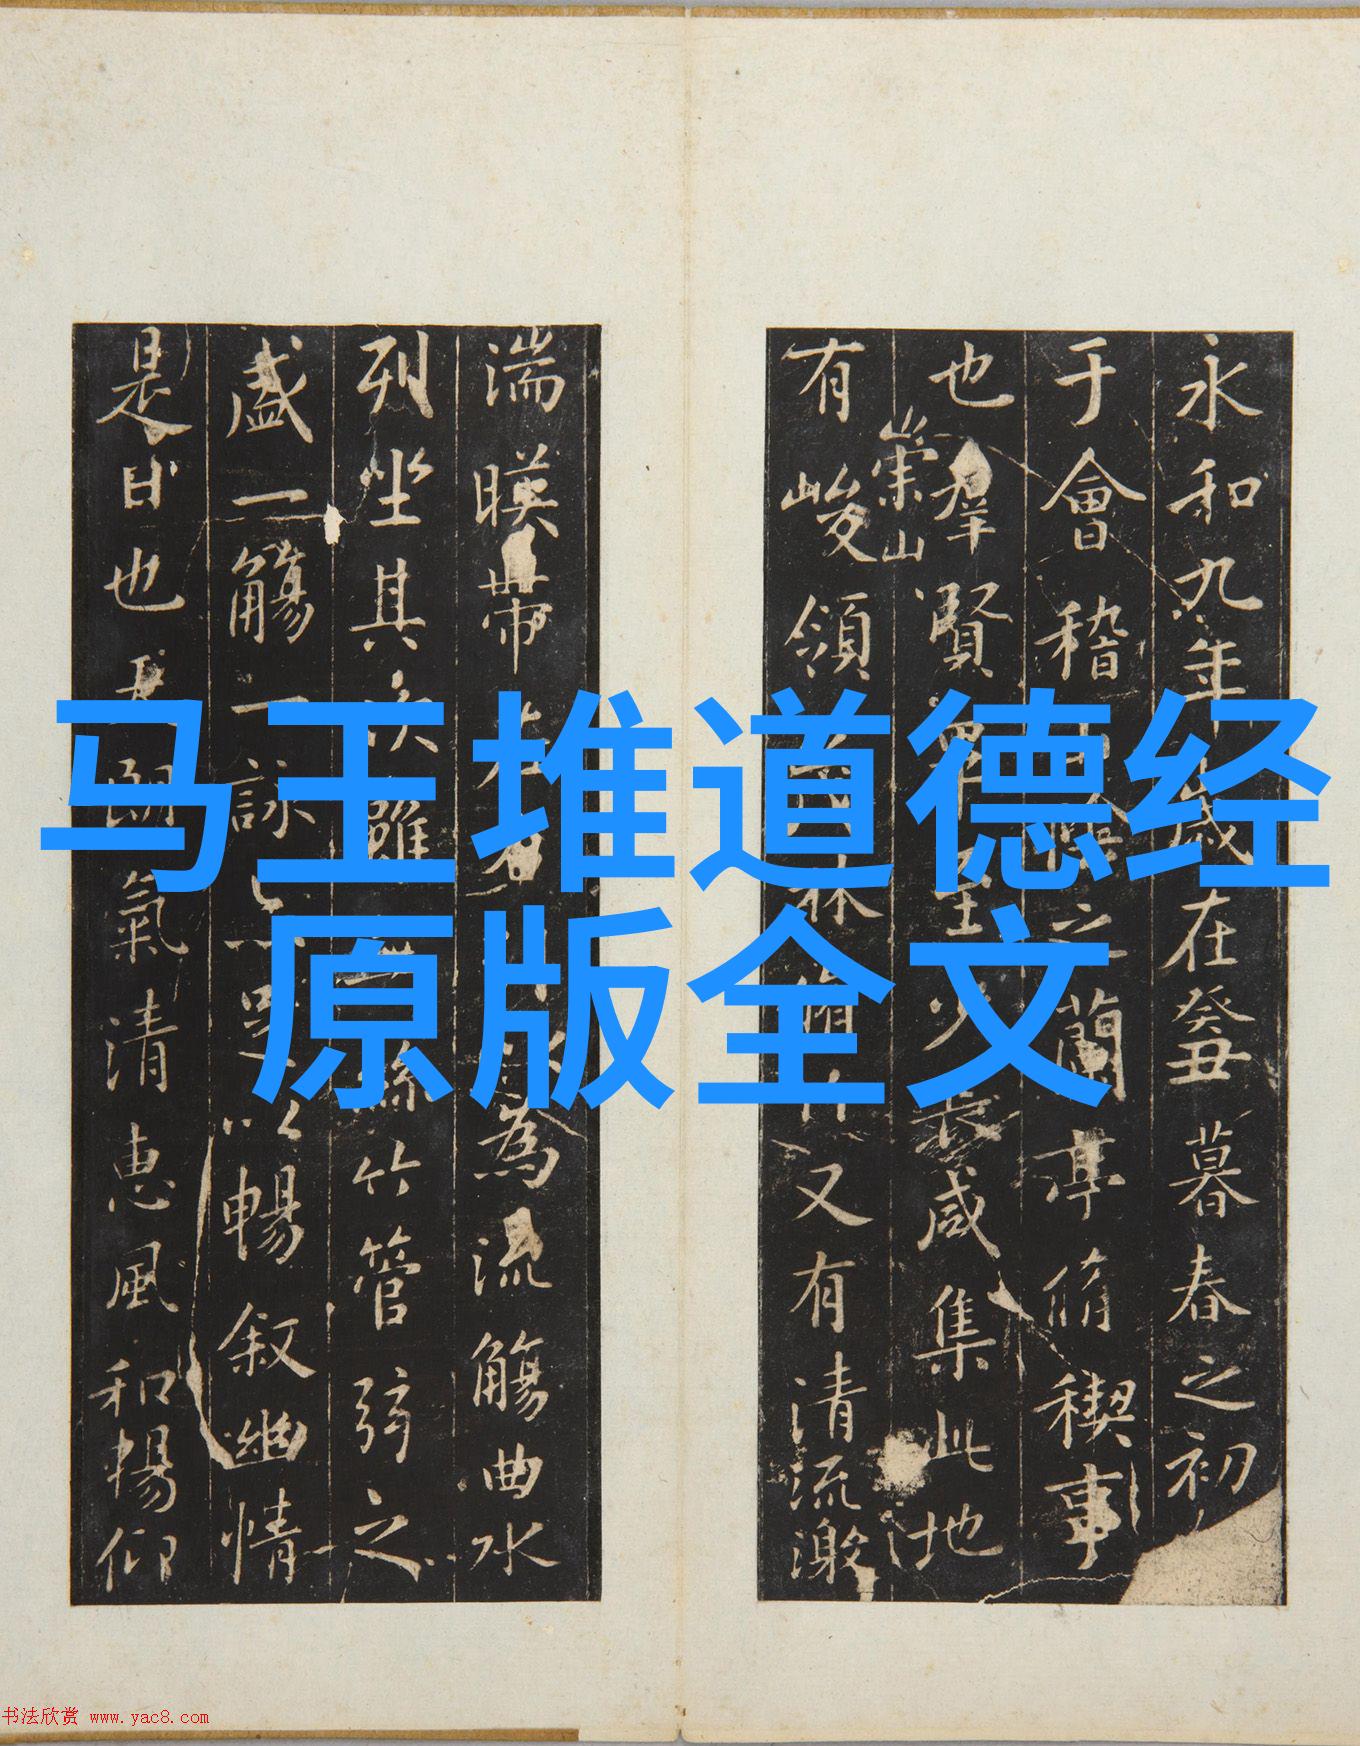 马王堆道德经
原版全文
永和九年歲在癸丑暮春之初
于會稽山陰之蘭亭脩稧事
也羣賢畢至少長咸集此地
有崇山峻領茂林脩竹又有清流激
湍暎帶左右引以為流觴曲水
列坐其次雖無絲竹管弦之
盛一觴一詠亦足以暢叙幽情
是日也天朗氣清惠風和暢仰
书法欣赏 www.yac8.com